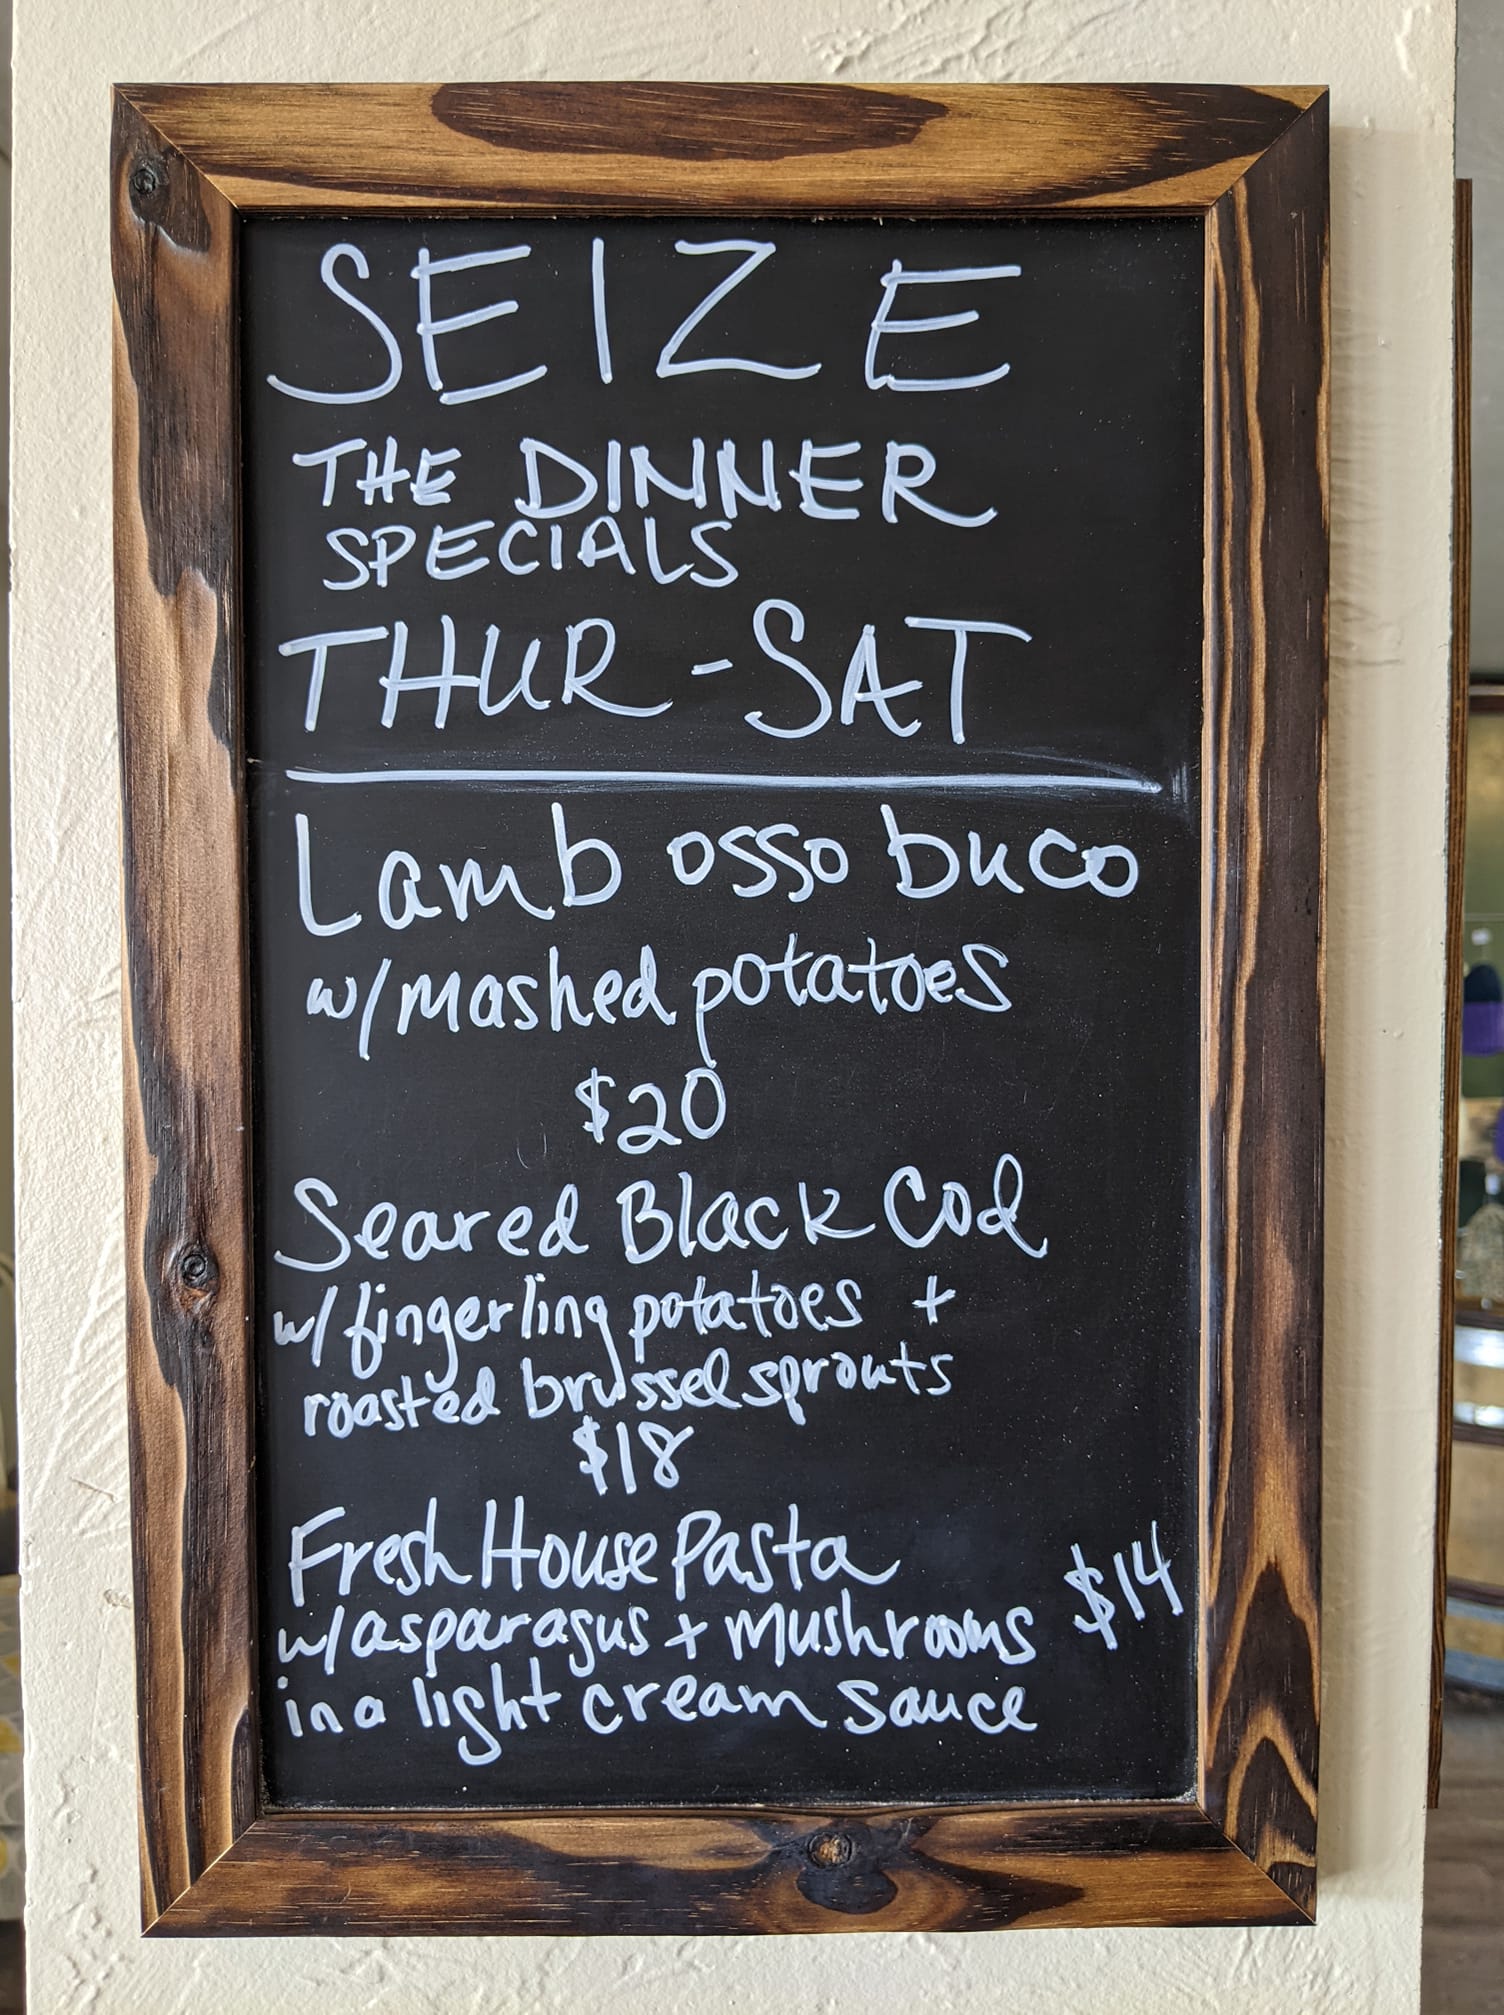 SEIZE
THE DINNER
SPECIALS
THUR-SAT
Lamb osso buco
w/mashed potatoes
$20
Seared Black Cod
w/fingerling potatoes +
roasted brussel sprouts
$18
Fresh House Pasta
w/asparagus + mushrooms $14
in a light cream sauce